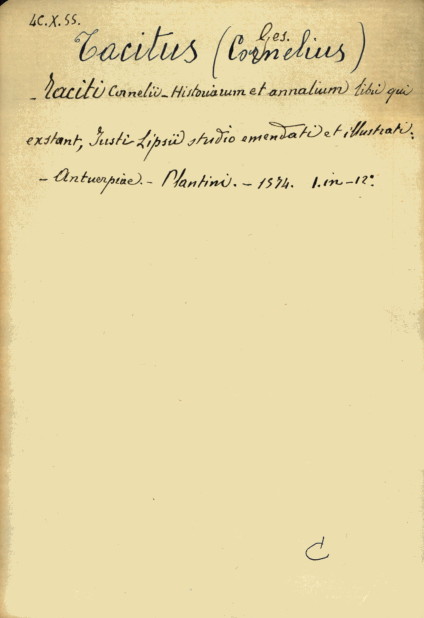 4C.X.55.
Ges.
Tacitus (Cornelius)
- Taciti Cornelii - Historiarum et annalium libri qui
exstant, Justi Lipsii studio emendati et illustrati.
- Antuerpiae. - Plantini. - 1574. 1. in - 12°.
C